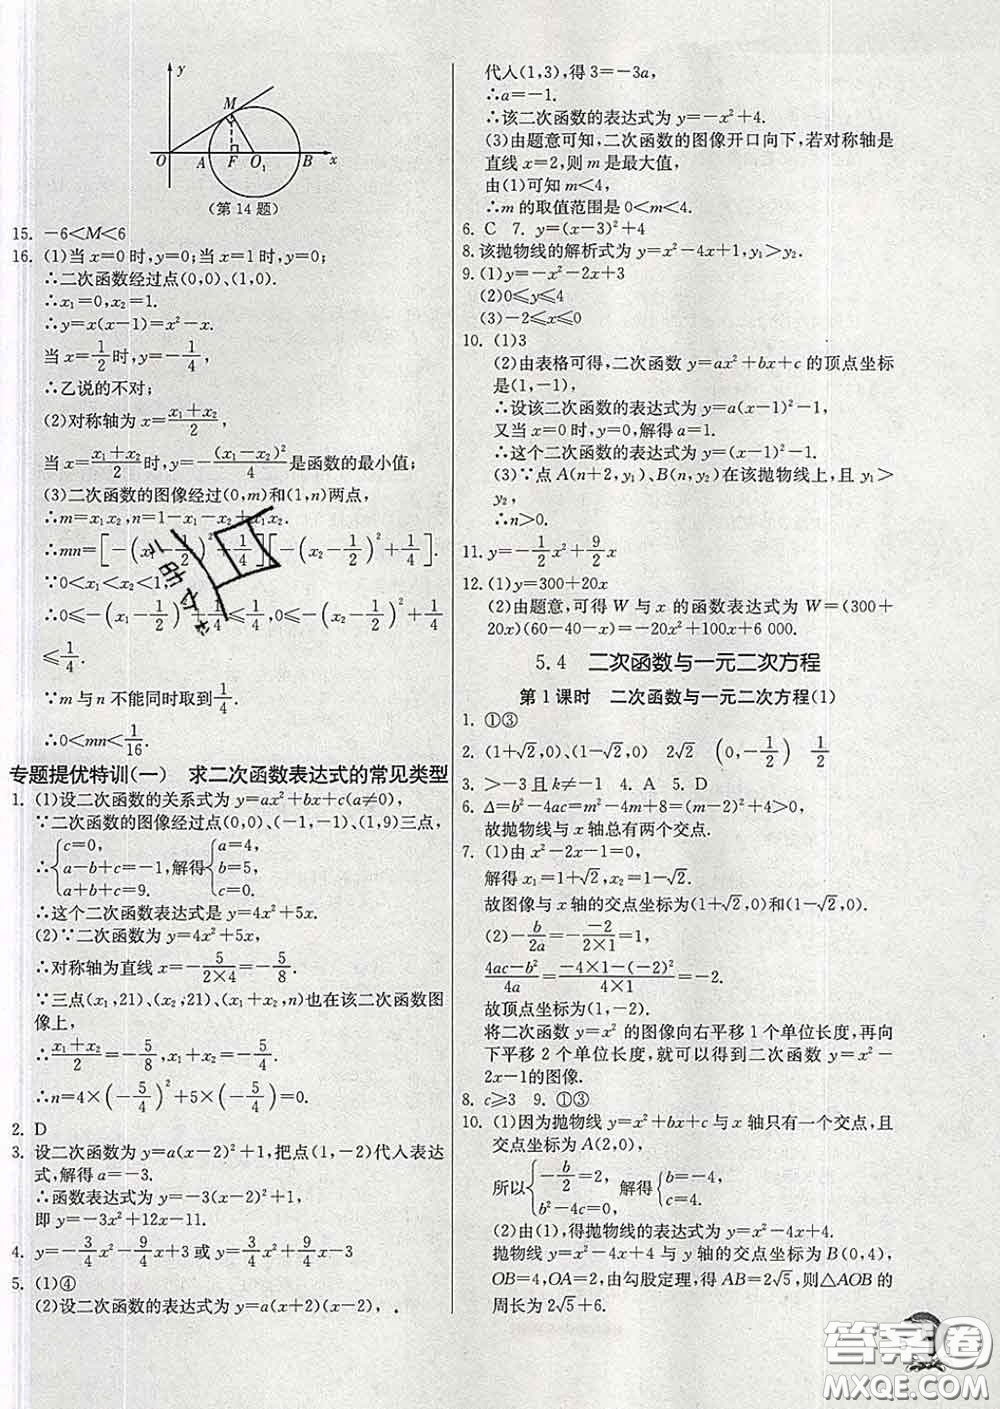 y
M
O A F O₁ B x
(第14题)
15. －6＜M＜6
16. (1)当 x=0 时,y=0;当 x=1 时,y=0;
∴二次函数经过点(0,0)、(1,0).
∴x₁=0,x₂=1.
∴y=x(x－1)=x²－x.
当 x=1/2 时,y=－1/4,
∴乙说的不对;
(2)对称轴为 x=(x₁+x₂)/2,
当 x=(x₁+x₂)/2 时,y=－(x₁－x₂)²/4 是函数的最小值;
(3)二次函数的图像经过(0,m)和(1,n)两点,
∴m=x₁x₂,n=1－x₁－x₂+x₁x₂.
∴mn=[－(x₁－1/2)²+1/4][－(x₂－1/2)²+1/4].
∵0＜x₁＜x₂＜1,
∴0≤－(x₁－1/2)²+1/4≤1/4,0≤－(x₂－1/2)²+1/4
≤1/4.
∵m 与 n 不能同时取到1/4,
∴0＜mn＜1/16.
专题提优特训(一) 求二次函数表达式的常见类型
1. (1)设二次函数的关系式为 y=ax²+bx+c(a≠0),
∵二次函数的图像经过点(0,0)、(－1,－1)、(1,9)三点,
∴{c=0, a－b+c=－1, a+b+c=9. 解得{a=4, b=5, c=0.
∴这个二次函数表达式是 y=4x²+5x.
(2)∵二次函数为 y=4x²+5x,
∴对称轴为直线 x=－5/(2×4)=－5/8.
∵三点(x₁,21)、(x₂,21)、(x₁+x₂,n)也在该二次函数图
像上,
∴(x₁+x₂)/2=－5/8,x₁+x₂=－5/4.
∴n=4×(－5/4)²+5×(－5/4)=0.
2. D
3. 设二次函数为 y=a(x－2)²+1,把点(1,－2)代入表达
式,解得 a=－3.
∴函数表达式为 y=－3(x－2)²+1,
即 y=－3x²+12x－11.
4. y=－3/4x²－9/4x+3 或 y=3/4x²+9/4x－3
5. (1)④
(2)设二次函数的表达式为 y=a(x+2)(x－2), .
代人(1,3),得 3=－3a,
∴a=－1.
∴该二次函数的表达式为 y=－x²+4.
(3)由题意可知,二次函数的图像开口向下,若对称轴是
直线 x=2,则 m 是最大值,
由(1)可知 m＜4,
∴m 的取值范围是 0＜m＜4.
6. C 7. y=(x－3)²+4
8. 该抛物线的解析式为 y=x²－4x+1,y₁＞y₂.
9. (1)y=－x²－2x+3
(2)0≤y≤4
(3)－2≤x≤0
10. (1)3
(2)由表格可得,二次函数 y=ax²+bx+c 的顶点坐标
是(1,－1),
∴设该二次函数的表达式为 y=a(x－1)²－1,
又当 x=0 时,y=0,解得 a=1.
∴这个二次函数的表达式为 y=(x－1)²－1.
(3)∵点 A(n+2,y₁)、B(n,y₂)在该抛物线上,且 y₁＞
y₂,
∴n＞0.
11. y=－1/2x²+9/2x
12. (1)y=300+20x
(2)由题意,可得 W 与 x 的函数表达式为 W=(300+
20x)(60－40－x)=－20x²+100x+6 000.
5.4 二次函数与一元二次方程
第1课时 二次函数与一元二次方程(1)
1. ①③
2. (1+√2,0)、(1－√2,0) 2√2 (0,－1/2) －1/2
3. ＞－3 且 k≠－1 4. A 5. D
6. Δ=b²－4ac=m²－4m+8=(m－2)²+4＞0,
故抛物线与 x 轴总有两个交点.
7. (1)由 x²－2x－1=0,
解得 x₁=1+√2,x₂=1－√2.
故图像与 x 轴的交点坐标为(1+√2,0)、(1－√2,0)
(2)－b/2a=－(－2)/(2×1)=1,
(4ac－b²)/4a=(－4×1－(－2)²)/(4×1)=－2.
故顶点坐标为(1,－2).
将二次函数 y=x² 的图像向右平移 1 个单位长度,再向
下平移 2 个单位长度,就可以得到二次函数 y=x²－
2x－1的图像.
8. c≥3 9. ①③
10. (1)因为抛物线 y=x²+bx+c 与 x 轴只有一个交点,且
交点坐标为 A(2,0),
所以{－b/2=2, b²－4c=0, 解得{b=－4, c=4.
(2)由(1),得抛物线的表达式为 y=x²－4x+4.
抛物线 y=x²－4x+4 与 y 轴的交点坐标为 B(0,4),
OB=4,OA=2,由勾股定理,得 AB=2√5,则△AOB的
周长为 2√5+6.
答案圈
MXQE.COM